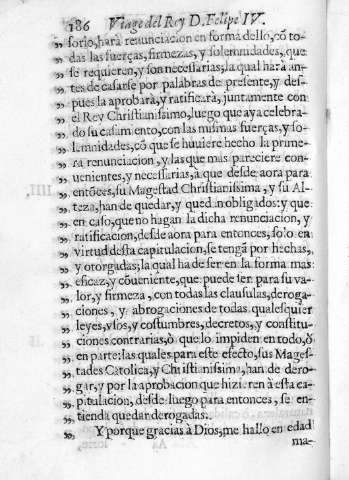 186 Viage del Rey D. Felipe IV.
„ sorlo, hará renunciacion en forma dello, cō to-
„ das las fuerças, firmezas, y solemnidades, que
„ se requieren, y son necessarias; la qual hará an-
„ tes de casarse por palabras de presente, y des-
„ pues la aprobará, y ratificará, juntamente con
„ el Rey Christianissimo, luego que aya celebra-
„ do su casamiento, con las mismas fuerças, y so-
„ lemnidades, cō que se huuiere hecho la prime-
„ ra renunciacion, y las que mas pareciere con-
„ uenientes, y necessarias, à que desde aora para
„ entōces, su Magestad Christianissima, y su Al-
„ teza, han de quedar, y quedan obligados: y que
„ en caso, que no hagan la dicha renunciacion, y
„ ratificacion, desde aora para entonces, solo en
„ virtud desta capitulacion, se tengā por hechas,
„ y otorgadas; la qual ha de ser en la forma mas
„ eficaz, y cōueniente, que puede ser para su va-
„ lor, y firmeza, con todas las clausulas, deroga-
„ ciones, y abrogaciones de todas qualesquier
„ leyes, vsos, y costumbres, decretos, y constitu-
„ ciones contrarias, ò que lo impiden en todo, ò
„ en parte: las quales para este efecto, sus Mages-
„ tades Catolica, y Christianissima, han de dero-
„ gar, y por la aprobacion que hizieren à esta ca-
„ pitulacion, desde luego para entonces, se en-
„ tienda quedar derogadas.
„ Y porque gracias à Dios, me hallo en edad
ma-